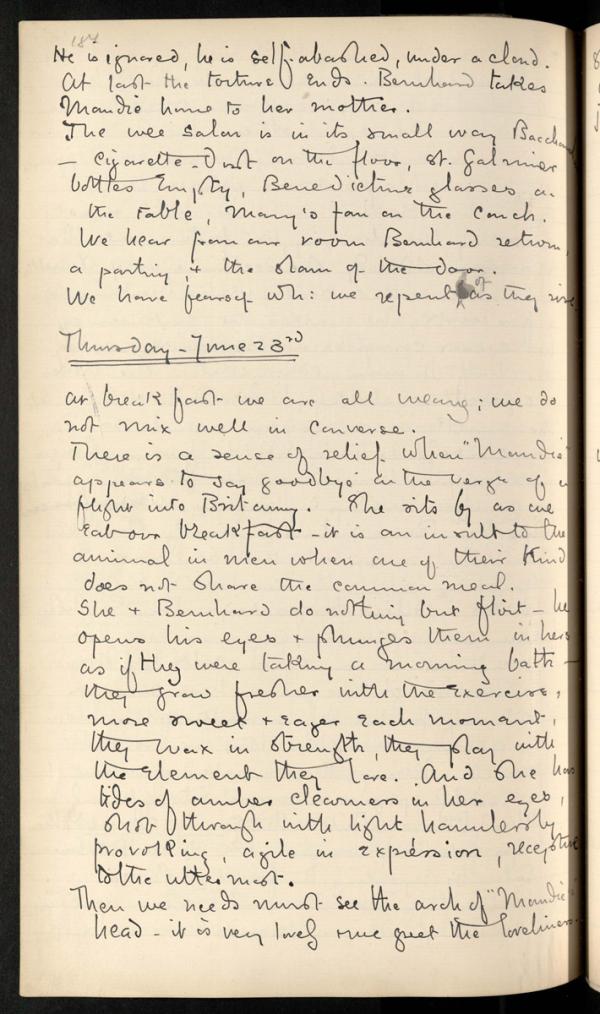 187
He is ignored, he is self-abashed, under a cloud.
At last the torture ends. Bernhard takes
Maudie home to her mother.
The wee salon is in its small way
— cigarette-dust on the floor, St. Galmier
bottles empty, Benedictine glasses on
the table, Mary's fan on the couch.
We hear from our room Bernhard return,
a parting, & the slam of the door.
We have fears of wh: we repent as they rise
Thursday - June 23rd
At breakfast we are all weary; we do
not mix well in converse.
There is a sense of relief when "Maudie"
appears to say goodbye on the verge of a
flight into Britanny. She sits by as we
eat our breakfast - it is an insult to the
animal in men when one of their kind
does not share the common meal.
She & Bernhard do nothing but flirt - he
opens his eyes & plunges them in hers
as if they were taking a morning bath -
they grow fresher with the exercise,
more sweet & eager each moment,
they wax in strength, they play with
the element they love. And she has
tides of amber clearness in her eyes,
shot through with light
provoking, agile in expression, receptive
to the uttermost.
Then we needs must see the arch of "Maudie's"
head - it is very lovely & we greet the loveliness